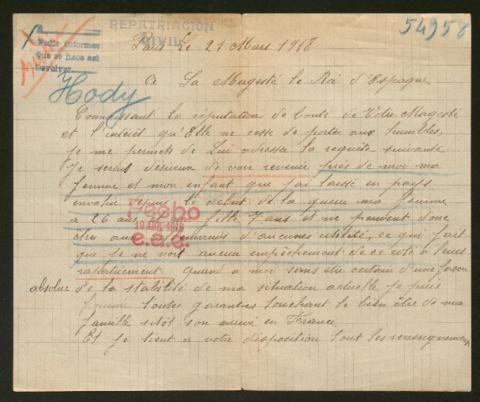 REPATRIACION
CIVIL
54958
Pedir informes
que se haga así
devolver
Paris le 21 Mars 1918
Hody
A Sa Magesté le Roi d'Espagne
Connaissant la réputation de bonté de Votre Magesté
et l'intérêt qu'Elle ne cesse de porter aux humbles,
je me permets de Lui adresser la requête suivante
Je serais désireux de voir revenir près de moi ma
femme et mon enfant que j'ai laissé en pays
envahi depuis le début de la guerre ma femme
a 26 ans fille 7 ans et ne peuvent donc
être aux d'aucunes utilité, ce qui fait
que je ne voit aucun empêchement de ce coté à leurs
rapatriement. Quand a moi sans être certain d'une façon
absolue de la stabilité de ma situation actuelle je puis
fournir toutes garanties touchant le bien être de ma
famille sitôt son arrivé en France
Et je tient a votre disposition tout les renseignements
Hecho